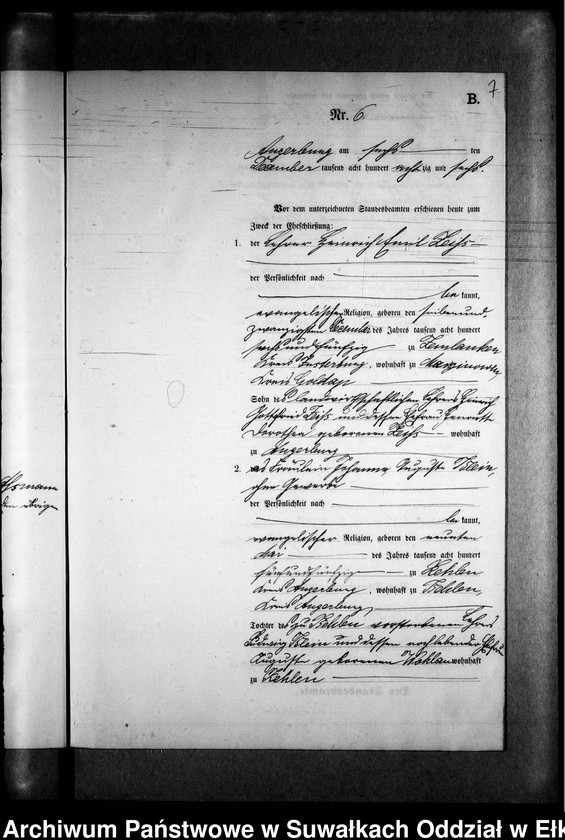 7
B.
Nr. 6.
Angerburg am sechs ten
Dezember tausend acht hundert achtzig und sechs.
Vor dem unterzeichneten Standesbeamten erschienen heute zum
Zweck der Eheschließung:
1. der Lehrer Heinrich Emil
der Persönlichkeit nach
be kannt,
evangelischer Religion, geboren den siebenund
zwanzigsten Dezember des Jahres tausend acht hundert
sechsundfünfzig zu
Kreis Insterburg, wohnhaft zu
Kreis Goldap
Sohn des landwirthschaftlichen Lehrers Heinrich
Gottfried und dessen Ehefrau Henriette
Dorothea geborenen wohnhaft
zu Angerburg
2. das Fräulein Johanne Auguste Klein,
ohne Gewerbe
der Persönlichkeit nach
be kannt,
evangelischer Religion, geboren den neunten
Mai des Jahres tausend acht hundert
fünfundfünfzig zu Kehlen
Kreis Angerburg, wohnhaft zu Kehlen,
Kreis Angerburg
Tochter des zu Kehlen verstorbenen Lehrers
Ludwig Klein und dessen noch lebender Ehefrau
Auguste geborenen wohnhaft
zu Kehlen
Archiwum Państwowe w Suwałkach Oddział w Ełk